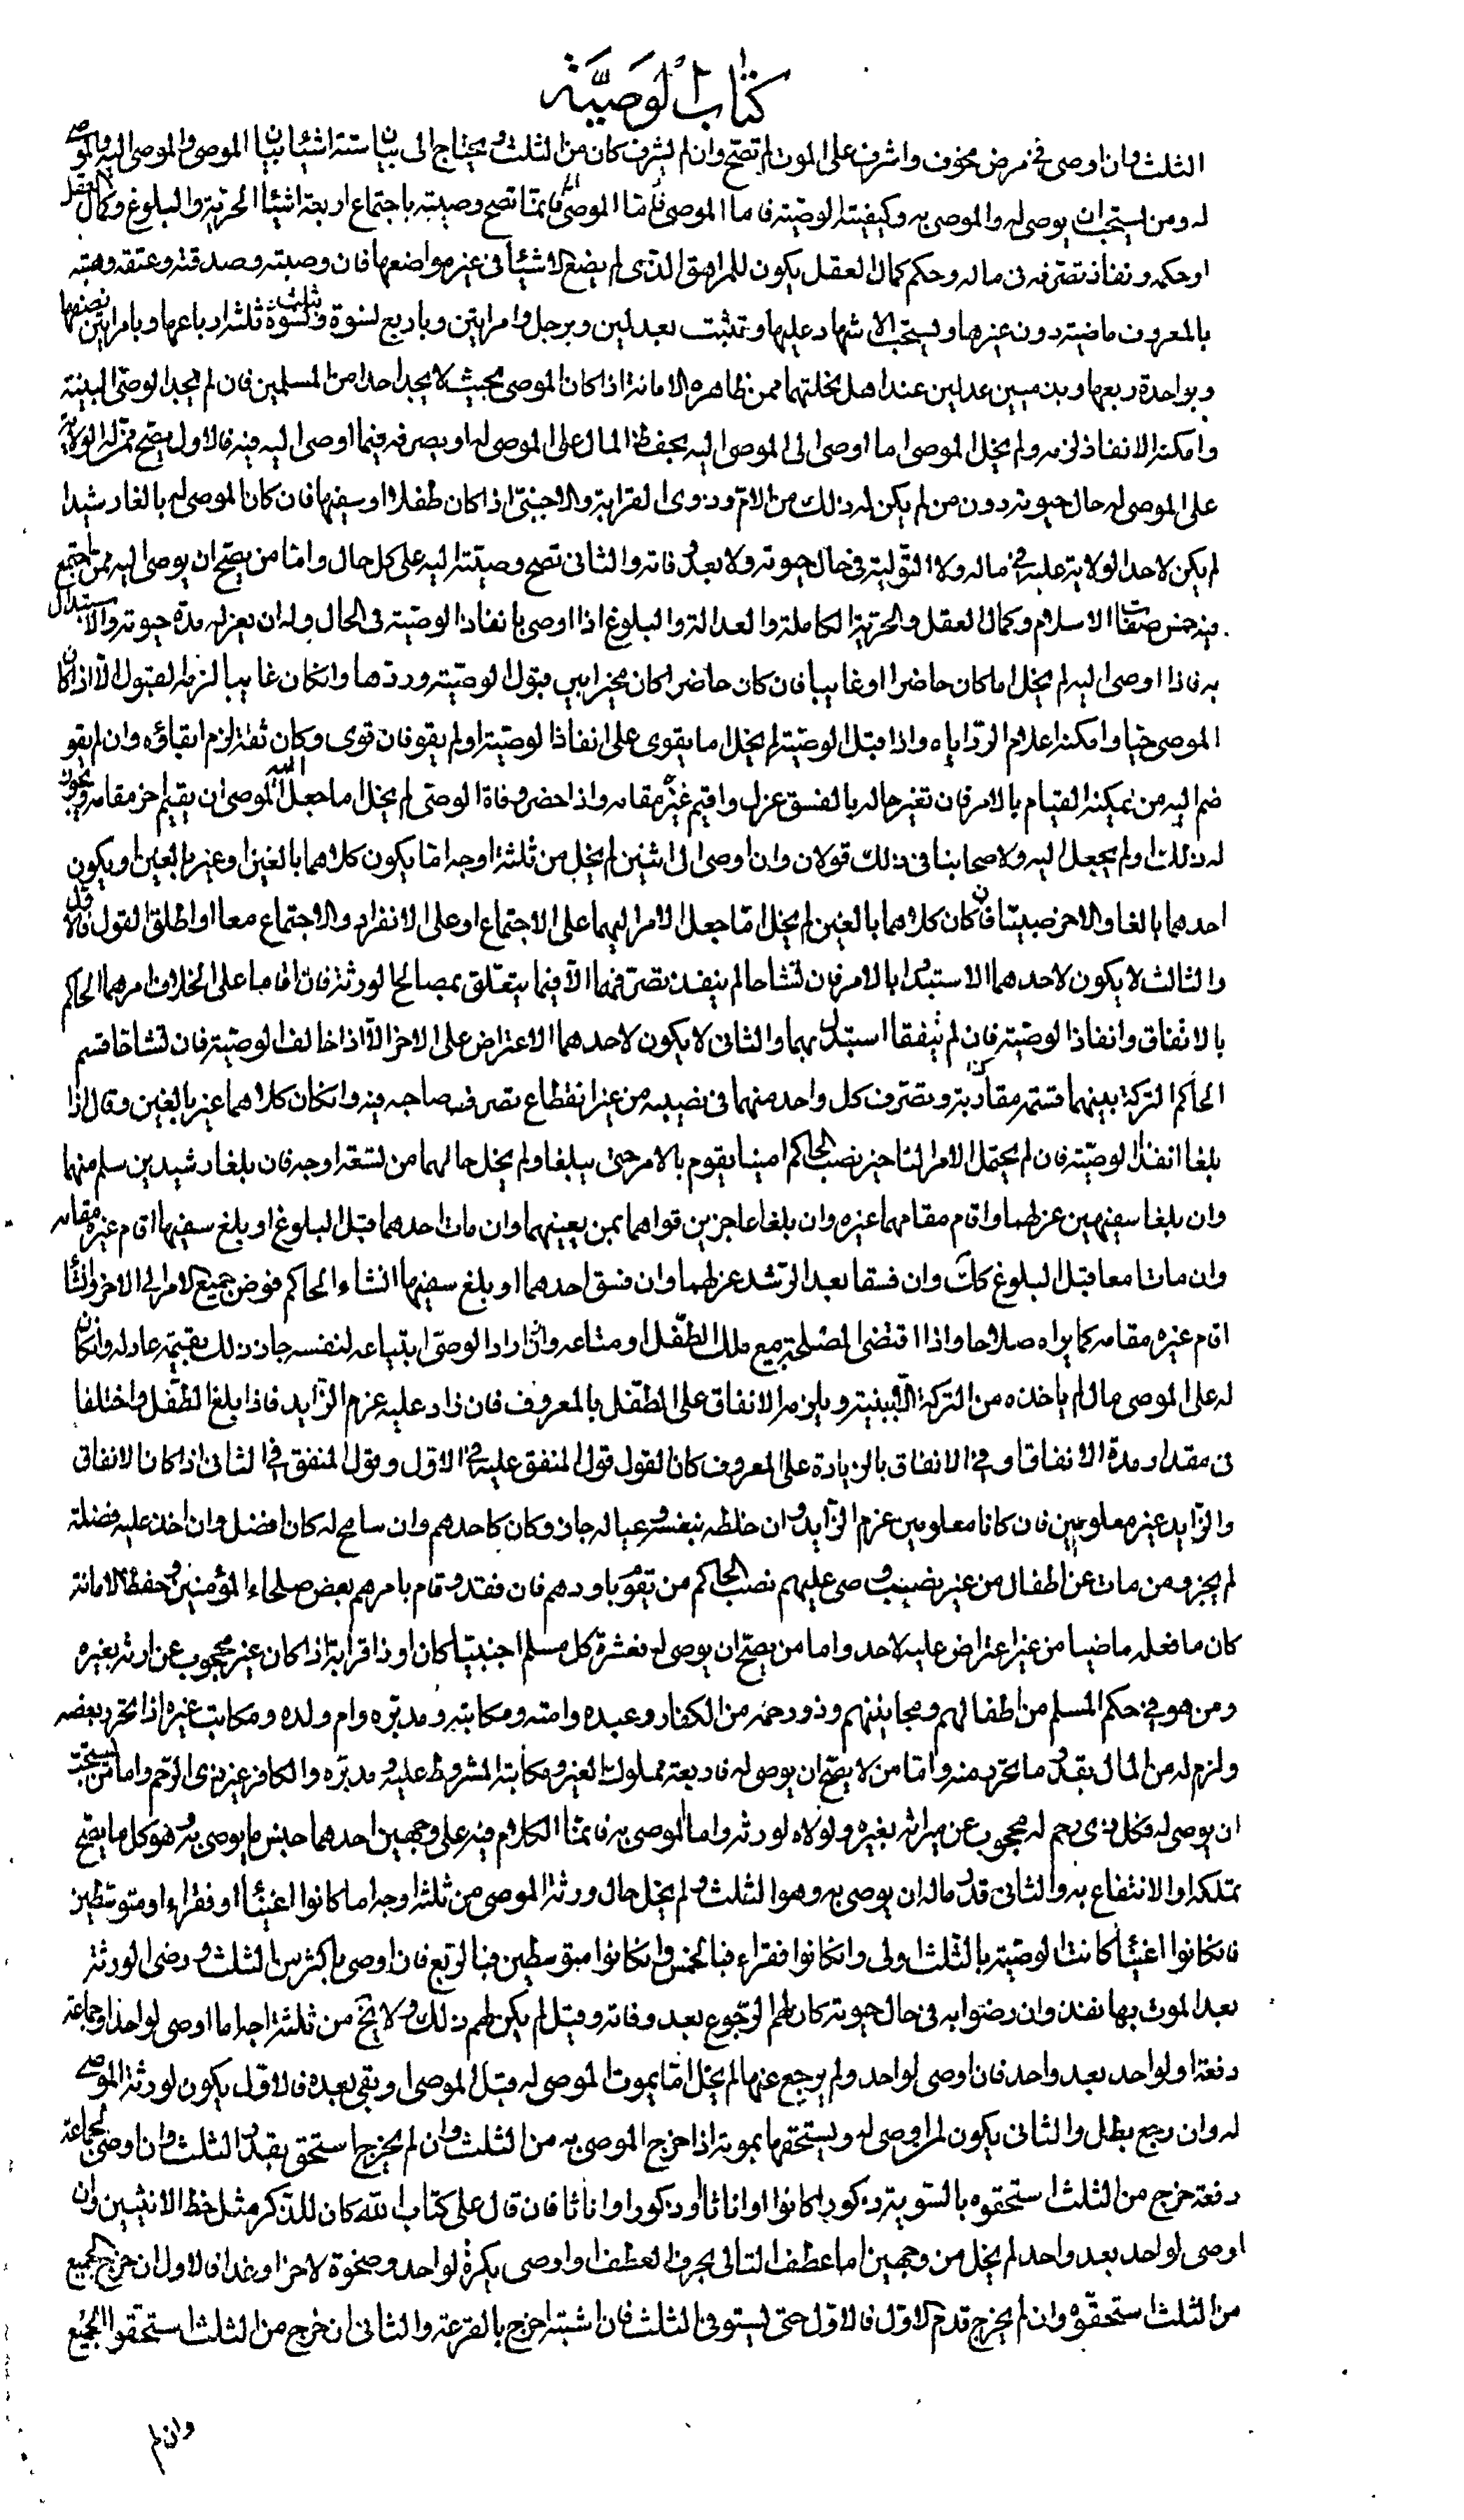 كتاب الوصية
الثلث وان اوصى في مرض مخوف واشرف على الموت لم تصح وان لم يشرف كان من الثلث ويحتاج الى بيان ستة اشياء بيان الموصي والموصى اليه والموصى
له ومن يستحب ان يوصى له والموصى به وكيفية الوصية فاما الموصي فانما تصح وصيته باجتماع اربعة اشياء الحرية والبلوغ وكمال العقل
او حكمه ونفاذ تصرفه فى ماله وحكم كمال العقل يكون للمراهق الذى لم يضع الاشياء فى غير مواضعها فان وصيته وصدقته وعتقه وهبته
بالمعروف ماضية دون غيرها ويستحب الاشهاد عليها وتثبت بعدلين وبرجل وامراتين وباربع نسوة وبثلث نسوة ثلثة ارباعها وبامراتين نصفها
وبواحدة ربعها وبذميين عدلين عند اهل نحلتهما ممن ظاهره الامانة اذا كان الموصى بحيث لا يجد احدا من المسلمين فان لم يجد الوصى البينة
وامكنه الانفاذ لزمه ولم يخل الموصى اما اوصى الى الموصى اليه بحفظ المال على الموصى له او بصرفه فيما اوصى اليه فيه فالاول يصح ممن له الولاية
على الموصى له حال حيوته دون من لم يكن له ذلك من الام وذوى القرابة والاجنبى اذا كان طفلا او سفيها فان كان الموصى له بالغا رشيدا
لم يكن لاحد الولاية عليه في ماله ولا التولية فى حال حيوته ولا بعد وفاته والثانى تصح وصيته اليه على كل حال واما من يصح ان يوصى اليه فمن اجتمع
فيه خمس صفات الاسلام وكمال العقل والحرية الكاملة والعدالة والبلوغ اذا اوصى بانفاذ الوصية فى الحال وله ان يعزله مدة حيوته والاستبدال
به فاذا اوصى اليه لم يخل اما كان حاضرا او غايبا فان كان حاضرا كان مخيرا بين قبول الوصية وردها وان كان غايبا لزمه القبول الا اذا كان
الموصى حيا وامكنه اعلام الرد اياه واذا قبل الوصية لم يخل اما يقوى على انفاذ الوصية او لم يقو فان قوى وكان ثقة لزم ابقاؤه وان لم يقو
ضم اليه من يمكنه القيام بالامر فان تغير حاله بالفسق عزل واقيم غيره مقامه واذا حضر وفاة الوصى لم يخل اما جعل اليه الموصى ان يقيم اخر مقامه ويجوز
له ذلك او لم يجعل اليه ولاصحابنا فى ذلك قولان وان اوصى الى اثنين لم يخل من ثلثة اوجه اما يكون كلاهما بالغين او غير بالغين او يكون
احدهما بالغا والاخر صبيا فان كان كلاهما بالغين لم يخل اما جعل الامر اليهما على الاجتماع او على الانفراد والاجتماع معا او اطلق القول فالاول
والثالث لا يكون لاحدهما الاستبداد بالامر فان تشاحا لم ينفذ تصرفهما الا فيما يتعلق بمصالح الورثة فان اقاما على الخلاف امرهما الحاكم
بالاتفاق وانفاذ الوصية فان لم يتفقا استبدل بهما والثانى لا يكون لاحدهما الاعتراض على الاخر الا اذا خالف الوصية فان تشاحا قسم
الحاكم التركة بينهما قسمة مقاربة وتصرف كل واحد منهما فى نصيبه من غير انقطاع تصرف صاحبه فيه وان كان كلاهما غير بالغين وقال اذا
بلغا انفذا الوصية فان لم يحتمل الامر التاخير نصب الحاكم امينا يقوم بالامر حتى يبلغا ولم يخل حالهما من تسعة اوجه فان بلغا رشيدين سلم منهما
وان بلغا سفيهين عزلهما واقام مقامهما غيره وان بلغا عاجزين قواهما بمن يعينهما وان مات احدهما قبل البلوغ او بلغ سفيها اقام غيره مقامه
وان ماتا معا قبل البلوغ كان وان فسقا بعد الرشد عزلهما وان فسق احدهما او بلغ سفيها ان شاء الحاكم فوض جميع الامر الى الاخر وان شاء
اقام غيره مقامه كما يراه صلاحا واذا اقتضى المصلحة بيع ملك الطفل او متاعه وان اراد الوصى ابتياعه لنفسه جاز ذلك بقيمة عادلة وان كان
له على الموصى مال لم ياخذه من التركة الا ببينة ويلزمه الانفاق على الطفل بالمعروف فان زاد عليه غرم الزايد فاذا بلغ الطفل واختلفا
فى مقدار مدة الانفاق او في الانفاق بالزيادة على المعروف كان القول قول المنفق عليه في الاول وقول المنفق في الثانى اذا كان الانفاق
والزايد غير معلومين فان كانا معلومين غرم الزايد وان خلطه بنفسه وعياله جاز وكان كاحدهم وان سامح له كان افضل وان اخذ عليه فضلة
لم يجز ومن مات عن اطفال من غير نصب وصى عليهم نصب الحاكم من تقوم باودهم فان فقد وقام بامرهم بعض صلحاء المؤمنين وحفظ الامانة
كان ما فعله ماضيا من غير اعتراض عليه لاحد واما من يصح ان يوصى له فعشرة كل مسلم اجنبيا كان او ذا قرابة اذا كان غير محجوب عن ارثه بغيره
ومن هو في حكم المسلم من اطفالهم ومجانينهم وذو رحمه من الكفار وعبده وامته ومكاتبه ومدبره وام ولده ومكاتب غيره اذا تحرر بعضه
ولزم له من المال بقدر ما تحرر منه واما من لا يصح ان يوصى له فاربعة مملوك الغير ومكاتبه المشروط عليه ومدبره والكافر غير ذى الرحم واما من يستحب
ان يوصى له فكل ذى رحم له محجوب عن ميراثه بغيره ولولاه لورثه واما الموصى به فانما الكلام فيه على وجهين احدهما جنس ما يوصى به وهو كل ما يصح
تملكه او الانتفاع به والثانى قدر ماله ان يوصى به وهو الثلث ولم يخل حال ورثة الموصى من ثلثة اوجه اما كانوا اغنياء او فقراء او متوسطين
فان كانوا اغنياء كانت الوصية بالثلث اولى وان كانوا فقراء فبالخمس وان كانوا متوسطين فبالربع فان اوصى باكثر من الثلث ورضى الورثة
بعد الموت بها نفذ وان رضوا به فى حال حيوته كان لهم الرجوع بعد وفاته وقيل لم يكن لهم ذلك ولا يخ من ثلثة اوجه اما اوصى لواحد او جماعة
دفعة او لواحد بعد واحد فان اوصى لواحد ولم يرجع عنها لم يخل اما يموت الموصى له قبل الموصى او بقى بعده فالاول يكون لورثة الموصى
له وان رجع بطل والثانى يكون لمن اوصى له ويستحقها بموته اذا خرج الموصى به من الثلث وان لم يخرج استحق بقدر الثلث وان اوصى لجماعة
دفعة خرج من الثلث استحقوه بالسوية ذكورا كانوا او اناثا او ذكورا واناثا فان قال على كتاب الله كان للذكر مثل حظ الانثيين وان
اوصى لواحد بعد واحد لم يخل من وجهين اما عطف التالى بحرف العطف او اوصى بكرة لواحد وضحوة لاخر او غدا فالاول ان خرج الجميع
من الثلث استحقوه وان لم يخرج قدم الاول فالاول حتى يستوفى الثلث فان اشتبه اخرج بالقرعة والثانى ان خرج من الثلث استحقوا الجميع
وان لم